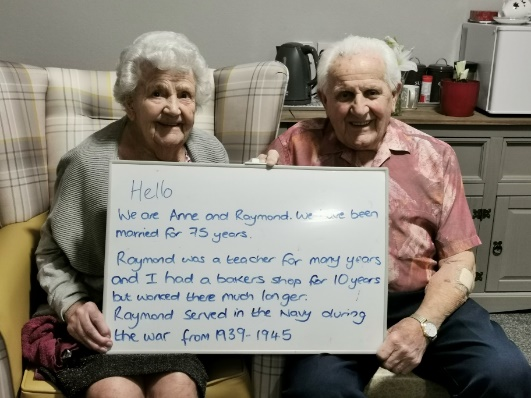 Hello
We are Anne and Raymond. We have been
married for 75 years.
Raymond was a teacher for many years
and I had a bakers shop for 10 years
but worked there much longer.
Raymond served in the Navy during
the war from 1939-1945